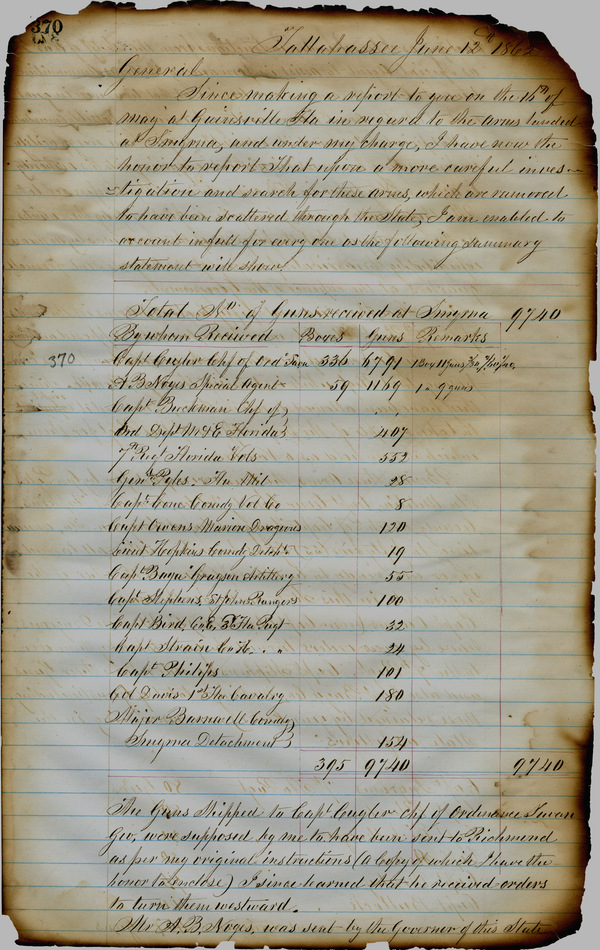 370
Tallahassee June 12th 1862
General
Since making a report to you on the 15th of
may at Gainsville Fla in regard to the arms landed
at Smyrna, and under my charge, I have now the
honor to report that upon a more careful inves-
-tigation and search for these arms, which are rumored
to have been scattered through the State, I am enabled to
account in full for every one as the following summary
statement will show.
Total No. of Guns received at Smyrna 9740
By whom Recieved Boxes Guns Remarks
370 Capt Cuyler Chf of Ord 336 6791 1 Box 11 guns
A B Noyes Special Agent 59 1169 1 " 9 guns
Capt Buckman Chf of
Ord Dept M & E Florida 407
7th Regt Florida Vols 552
Genl Pyles Fla Mil 28
Capt Cone Comdg Vol Co 8
Capt Owens Marion Dragoons 120
Lieut Hopkins Comdg Detcht 19
Capt Baya Grayson Artillery 55
Capt Stephens, St Johns Rangers 100
Capt Bird, Co E, 3d Fla Regt 32
Capt Strain Co H. " " 24
Capt Philips 101
Col Davis 1st Fla Cavalry 180
Major Barnwell Comdg
Smyrna Detachment 154
395 9740 9740
The Guns Shipped to Capt Cuyler Chf of Ordinance Savan
Geo, were supposed by me to have been sent to Richmond
as per my original instructions (a copy of which I have the
honor to enclose) I since learned that he received orders
to turn them westward.
Mr A. B. Noyes, was sent by the Governor of this State